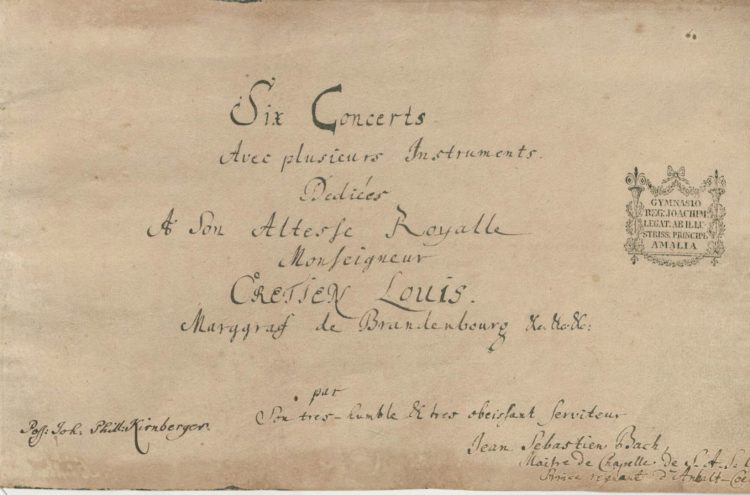 Six Concerts
Avec plusieurs Instruments.
Dediées
A Son Altesse Royalle
Monseigneur
CRETIEN LOUIS.
Marggraf de Brandenbourg &c. &c. &c:
par
Son tres-humble & tres obeissant serviteur
Jean Sebastien Bach
Maitre de Chapelle de S. A. S.
Prince regnant d'Anhalt-Coe
Poss: Joh. Phill: Kirnberger.
GYMNASIO
REG. JOACHIM.
LEGAT. AB ILLU
STRISS. PRINCIPE
AMALIA